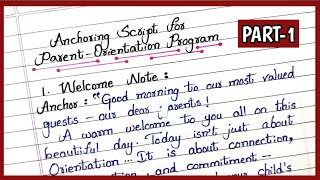 Anchoring Script for
Parent-Orientation Program
PART-1
1. Welcome Note :
Anchor : "Good morning to our most valued
guests – our dear parents!
A warm welcome to you all on this
beautiful day. Today isn't just about
Orientation... It is about connection,
and commitment –
child's